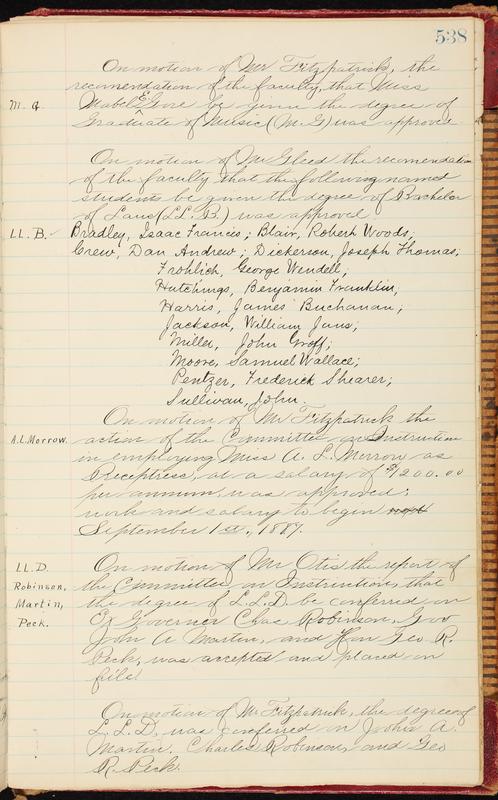 538
On motion of Mr Fitzpatrick, the
recomendation of the faculty, that Miss
M. G. Mabel E Gore be given the degree of
Graduate of Music (M.G) was approved
On motion of Mr Gleed the recomendation
of the faculty that the following named
students be given the degree of Bachelor
of Laws (LL.B.) was approved
LL. B. Bradley, Isaac Francis; Blair, Robert Woods;
Crew, Dan Andrew; Dickerson, Joseph Thomas;
Frohlich, George Wendell,
Hutchings, Benjamin Franklin;
Harris, James Buchanan;
Jackson, William Jans;
Miller, John Groff;
Moore, Samuel Wallace;
Pentzer, Frederick Shearer;
Sullivan, John.
On motion of Mr Fitzpatrick the
A.L. Morrow. action of the Committee on Instruction
in employing Miss A. L. Morrow as
Preceptress, at a salary of $1200.00
per annum, was approved;
work and salary to begin
September 1st., 1887.
LL. D. On motion of Mr Otis the report of
Robinson, the Committee on Instruction, that
Martin, the degree of L.L.D. be conferred on
Peck. Ex Governor Chas Robinson, Gov
John A Martin, and Hon Geo R.
Peck, was accepted and placed on
file
On motion of Mr Fitzpatrick, the degree of
L.L.D. was conferred on John A.
Martin, Charles Robinson, and Geo
R. Peck.